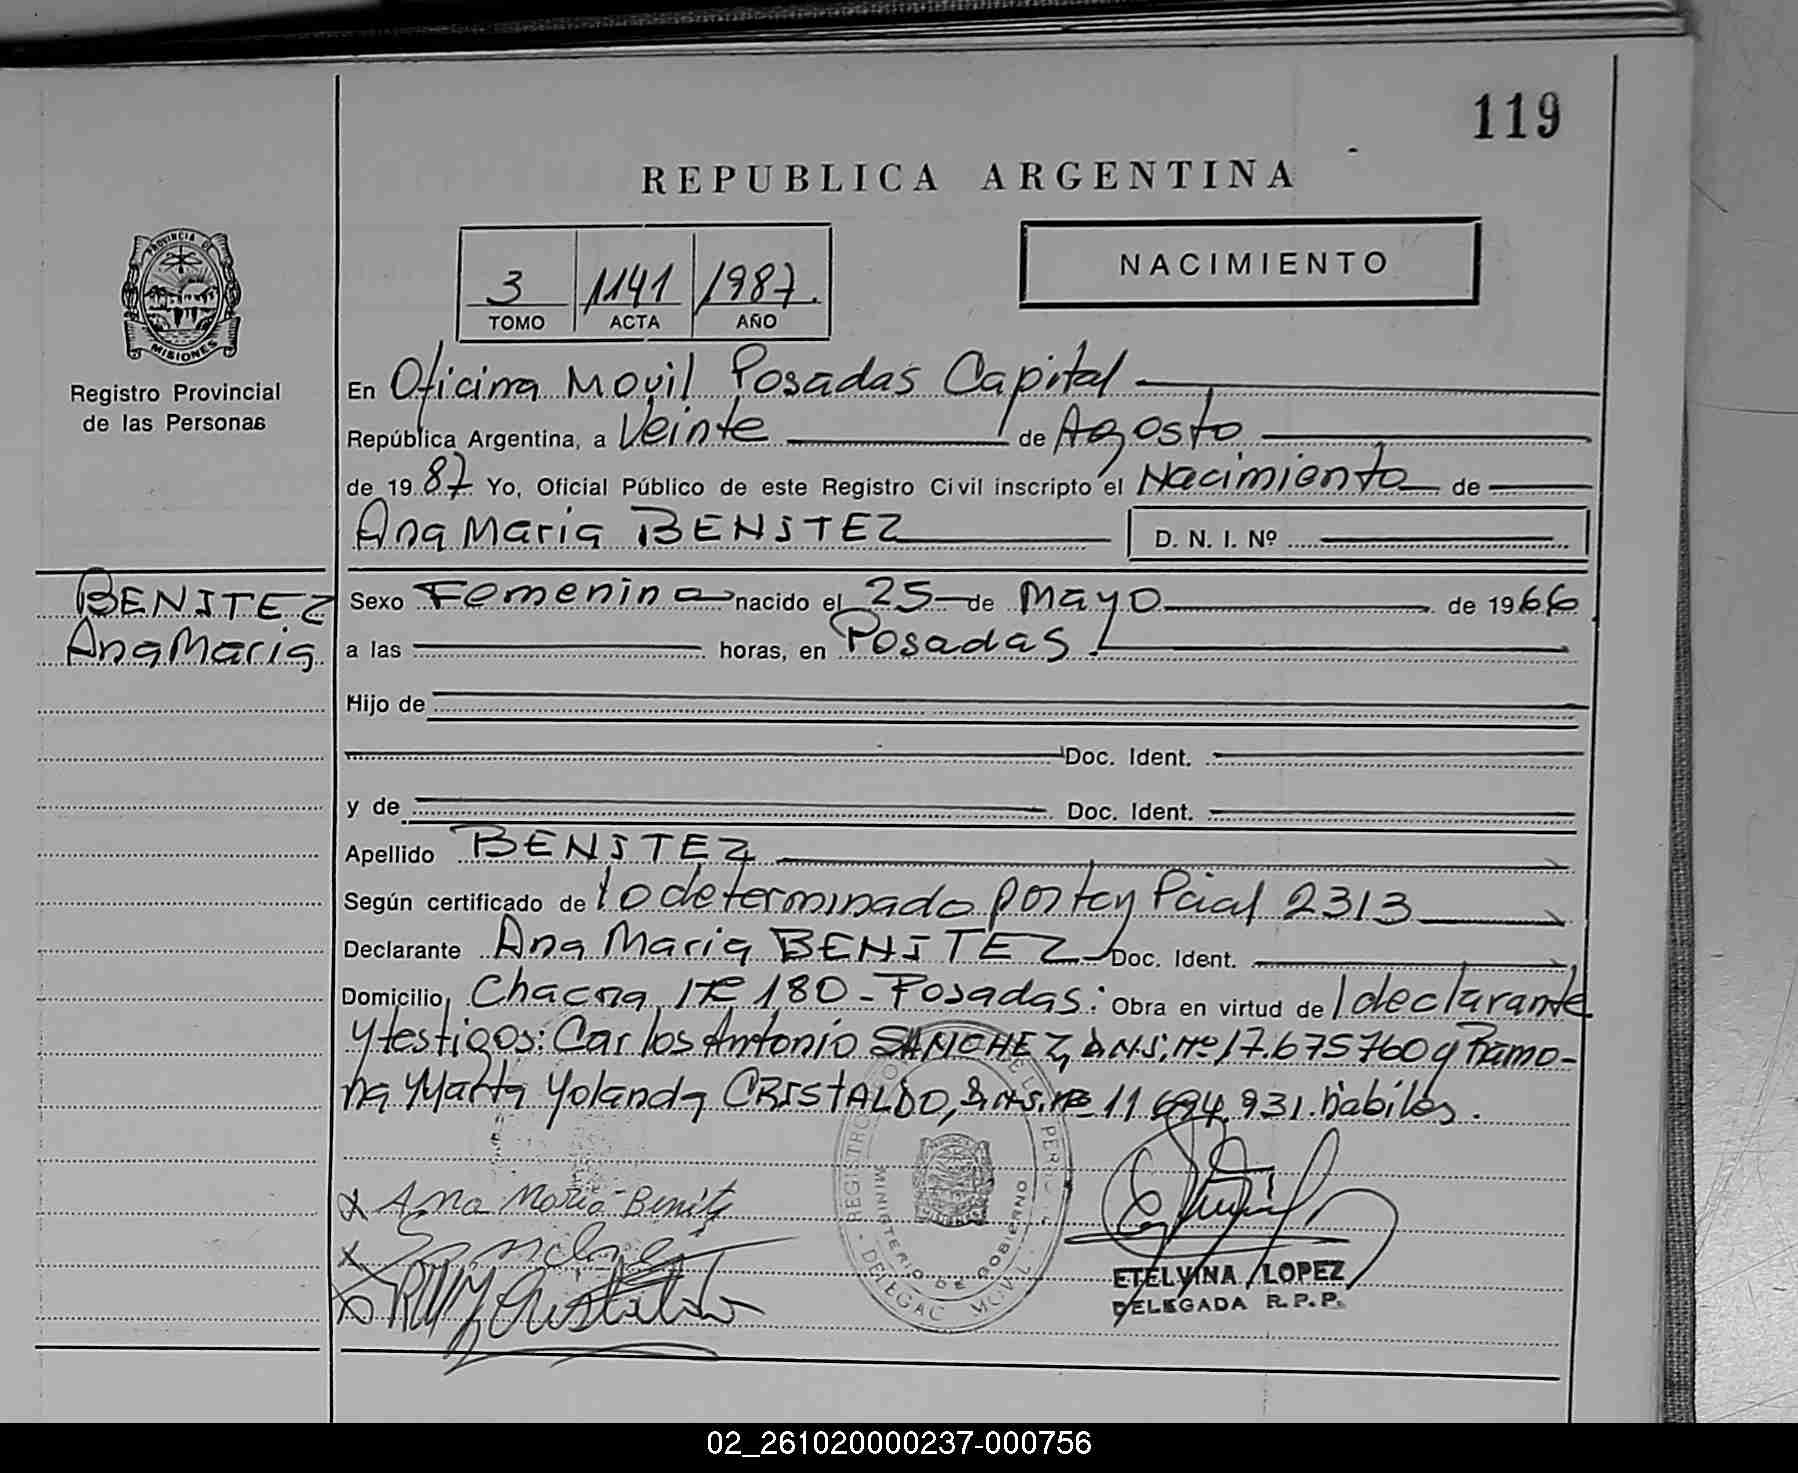 119
REPUBLICA ARGENTINA
PROVINCIA DE
MISIONES
Registro Provincial
de las Personas
NACIMIENTO
3 1141 1987.
TOMO ACTA AÑO
En Oficina Movil Posadas Capital
República Argentina, a Veinte de Agosto
de 1987 Yo, Oficial Público de este Registro Civil inscripto el Nacimiento de
Ana Maria BENITEZ D. N. I. Nº
BENITEZ
Ana Maria
Sexo Femenina nacido el 25 de Mayo de 1966
a las horas, en Posadas
Hijo de
Doc. Ident.
y de Doc. Ident.
Apellido BENITEZ
Según certificado de lo determinado por Ley Pcial 2313
Declarante Ana Maria BENITEZ Doc. Ident.
Domicilio Chacra Nº 180 - Posadas. Obra en virtud de l declarante
y testigos: Carlos Antonio SANCHEZ, D.N.I. Nº 17.675760 y Ramo-
na Marta Yolanda CRISTALDO, D.N.I. Nº 11.694.931. hábiles.
REGISTRO
MINISTERIO DE GOBIERNO
DELEGAC. MOVIL
x Ana Maria Benitez
x Sanchez
x RMY Cristaldo
ETELVINA LOPEZ
DELEGADA R.P.P.
02_261020000237-000756